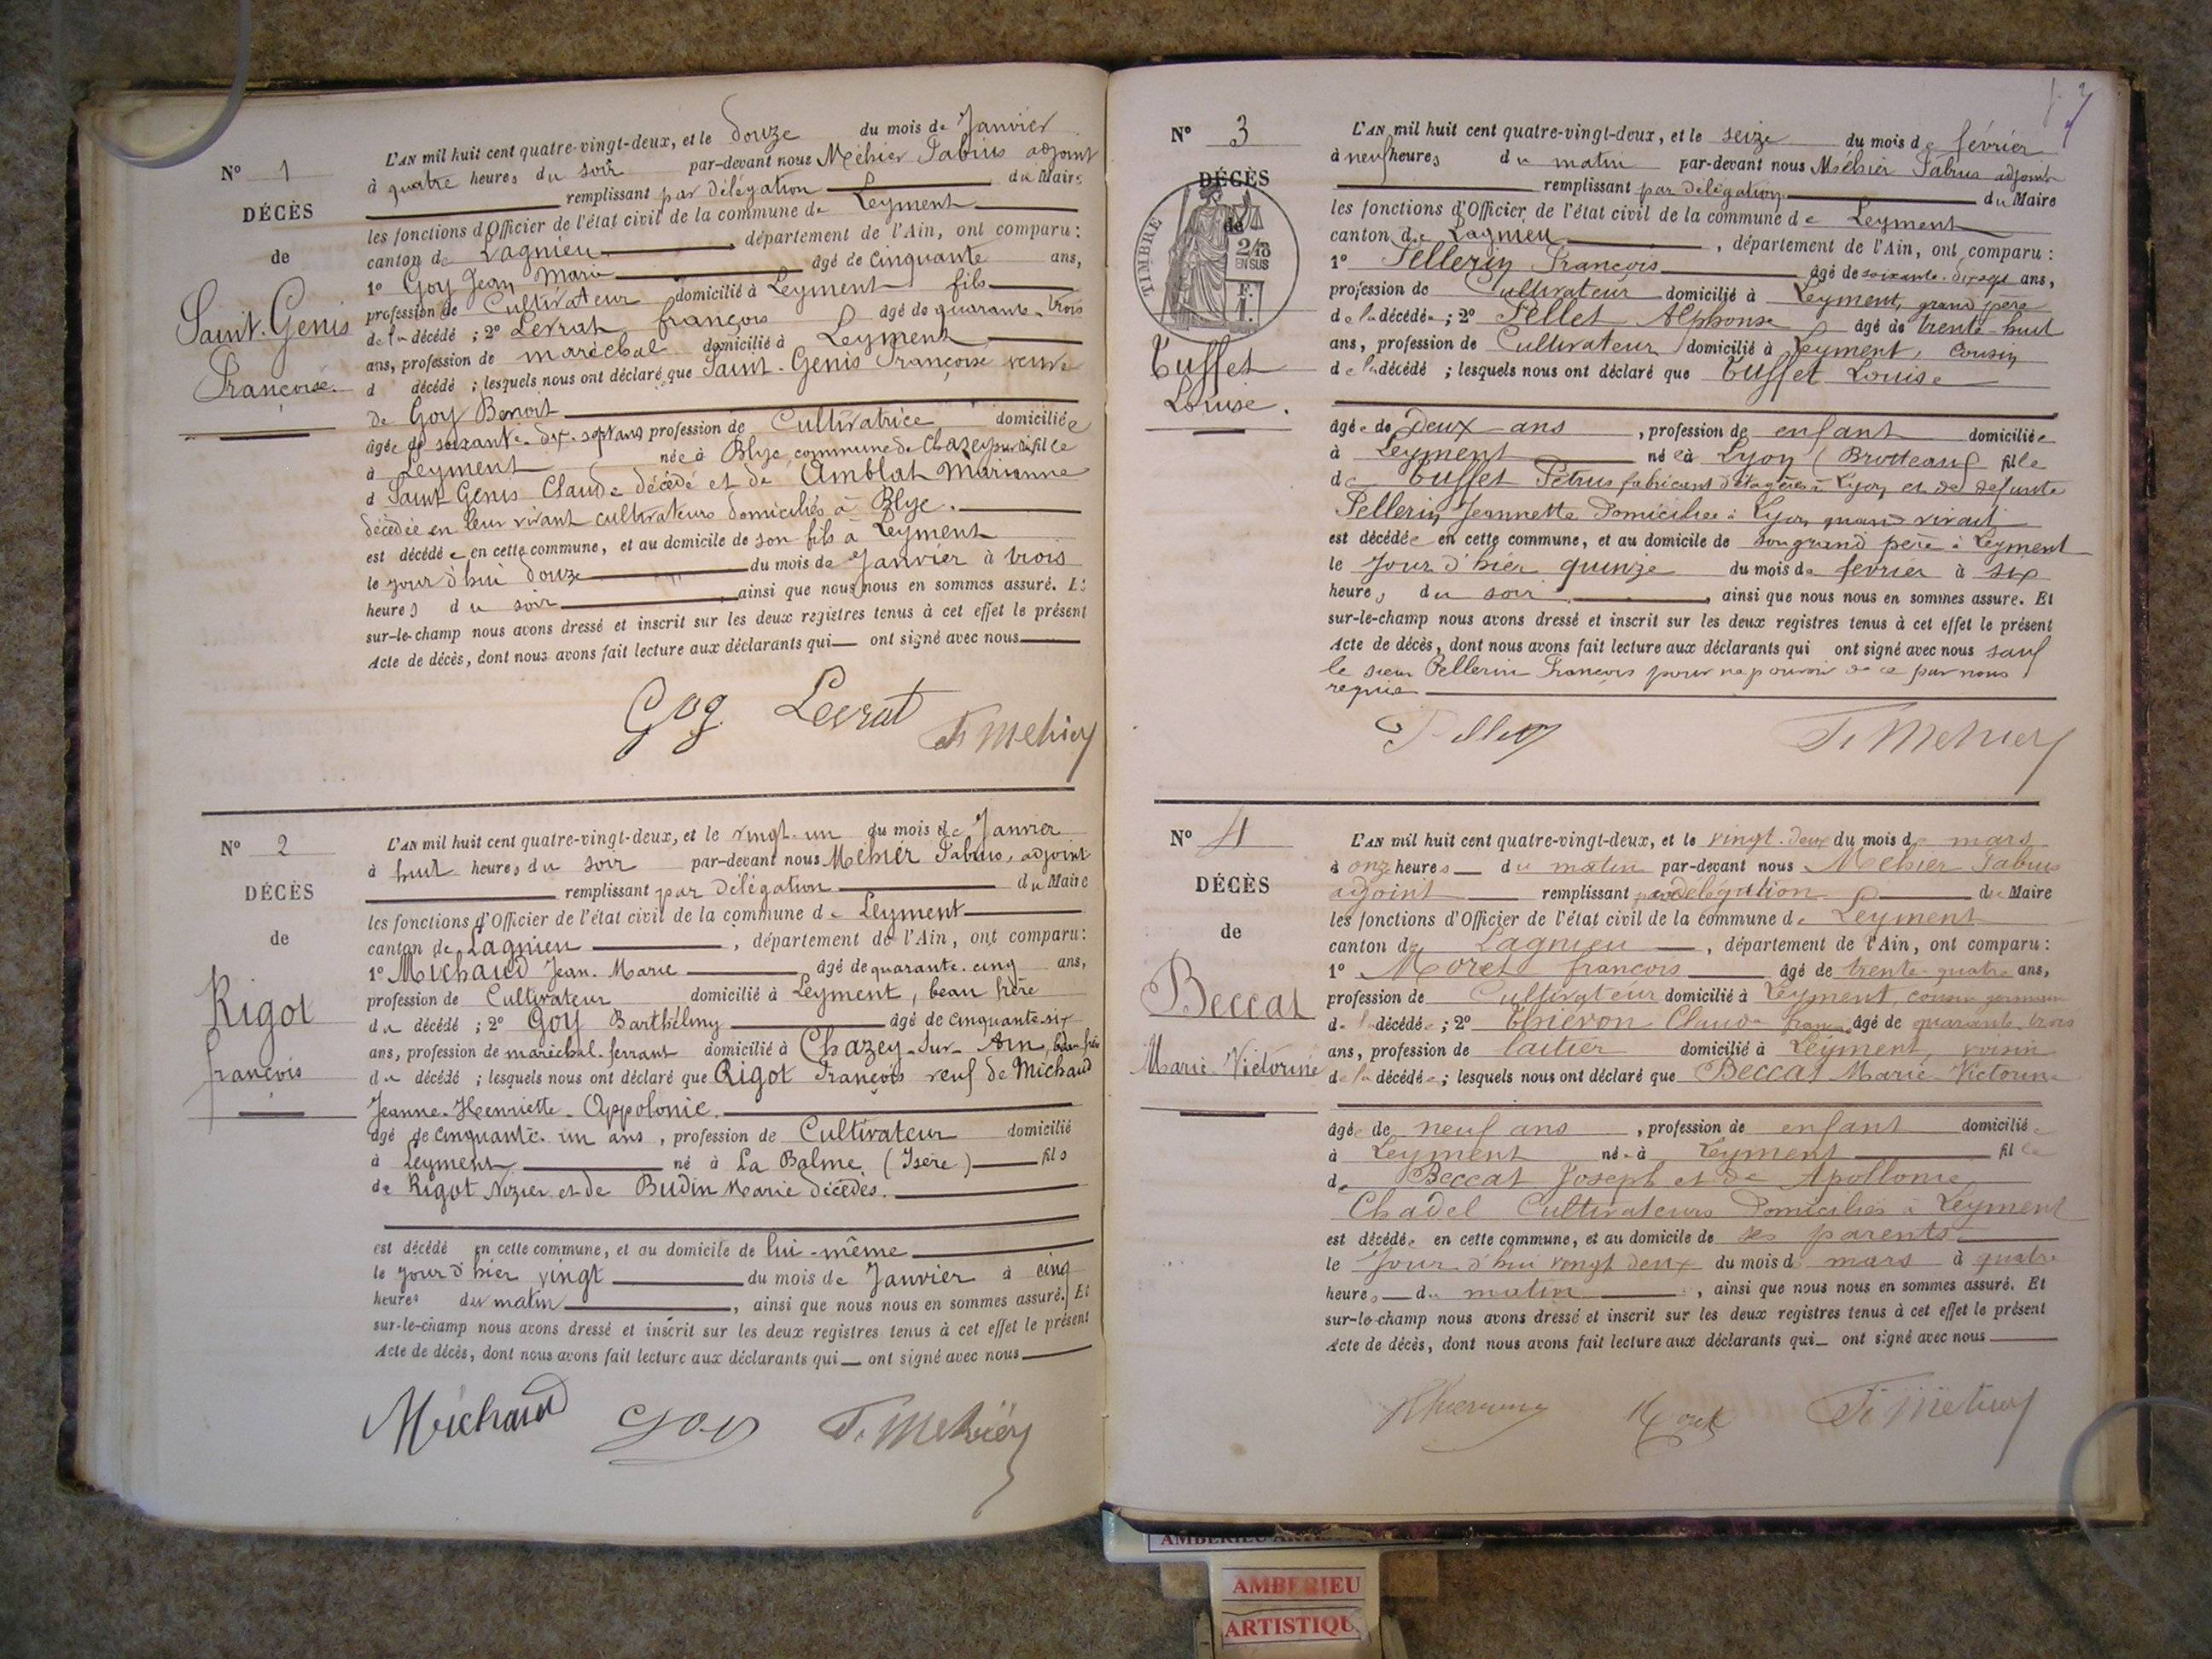 N° 1
DÉCÈS
de
Saint-Genis
Françoise
L'AN mil huit cent quatre-vingt-deux, et le douze du mois de Janvier
à quatre heures du soir par-devant nous Méhier Fabius adjoint
remplissant par délégation du Maire
les fonctions d'Officier de l'état civil de la commune de Leyment
canton de Lagnieu, département de l'Ain, ont comparu :
1° Goy Jean Marie âgé de cinquante ans,
profession de Cultivateur domicilié à Leyment fils
de la décédé ; 2° Levrat françois âgé de quarante-trois
ans, profession de maréchal domicilié à Leyment
d décédé ; lesquels nous ont déclaré que Saint-Genis Françoise veuve
de Goy Benoit
âgée de soixante-dix-sept ans profession de Cultivatrice domiciliée
à Leyment née à Blye, commune de Chazey fille
d Saint Genis Claude décédé et de Amblat Marianne
décédée en leur vivant cultivateurs domiciliés à Blye.
est décédée en cette commune, et au domicile de son fils à Leyment
le jour d'hui douze du mois de Janvier à trois
heures du soir, ainsi que nous nous en sommes assuré. Et
sur-le-champ nous avons dressé et inscrit sur les deux registres tenus à cet effet le présent
Acte de décès, dont nous avons fait lecture aux déclarants qui ont signé avec nous
Goy Levrat F. Méhier
N° 2
DÉCÈS
de
Rigot
françois
L'AN mil huit cent quatre-vingt-deux, et le vingt-un du mois de Janvier
à huit heures du soir par-devant nous Méhier Fabius, adjoint
remplissant par délégation du Maire
les fonctions d'Officier de l'état civil de la commune de Leyment
canton de Lagnieu, département de l'Ain, ont comparu :
1° Michaud Jean-Marie âgé de quarante-cinq ans,
profession de Cultivateur domicilié à Leyment, beau frère
du décédé ; 2° Goy Barthélmy âgé de cinquante six
ans, profession de maréchal-ferrant domicilié à Chazey-sur-Ain, beau frère
du décédé ; lesquels nous ont déclaré que Rigot François veuf de Michaud
Jeanne-Henriette-Appolonie.
âgé de cinquante-un ans, profession de Cultivateur domicilié
à Leyment né à La Balme (Isère) fils
de Rigot Nizier et de Budin Marie décédés.
est décédé en cette commune, et au domicile de lui-même
le jour d'hier vingt du mois de Janvier à cinq
heures du matin, ainsi que nous nous en sommes assuré. Et
sur-le-champ nous avons dressé et inscrit sur les deux registres tenus à cet effet le présent
Acte de décès, dont nous avons fait lecture aux déclarants qui ont signé avec nous
Michaud Goy F. Méhier
N° 3
DÉCÈS
de
TIMBRE
2/10
EN SUS
F.
1.
Tuffet
Louise.
L'AN mil huit cent quatre-vingt-deux, et le seize du mois de février
à neuf heures du matin par-devant nous Méhier Fabius adjoint
remplissant par délégation du Maire
les fonctions d'Officier de l'état civil de la commune de Leyment
canton de Lagnieu, département de l'Ain, ont comparu :
1° Pellerin François âgé de soixante-dix sept ans,
profession de Cultivateur domicilié à Leyment, grand père
de la décédée ; 2° Pellet Alphonse âgé de trente-huit
ans, profession de Cultivateur domicilié à Leyment, cousin
de la décédé ; lesquels nous ont déclaré que Tuffet Louise
âgée de deux ans, profession de enfant domiciliée
à Leyment née à Lyon (Brotteaux) fille
de Tuffet Pétrus fabricant d'étagères à Lyon et de défunte
Pellerin Jeannette Domiciliée à Lyon quand vivait
est décédée en cette commune, et au domicile de son grand père à Leyment
le Jour d'hier quinze du mois de février à six
heures du soir, ainsi que nous nous en sommes assuré. Et
sur-le-champ nous avons dressé et inscrit sur les deux registres tenus à cet effet le présent
Acte de décès, dont nous avons fait lecture aux déclarants qui ont signé avec nous sauf
le sieur Pellerin François pour ne pouvoir de ce par nous
requis
Pellet F. Méhier
N° 4
DÉCÈS
de
Beccat
Marie-Victorine
L'AN mil huit cent quatre-vingt-deux, et le vingt-deux du mois de mars
à onze heures du matin par-devant nous Méhier Fabius
adjoint remplissant par délégation de Maire
les fonctions d'Officier de l'état civil de la commune de Leyment
canton de Lagnieu, département de l'Ain, ont comparu :
1° Moret françois âgé de trente-quatre ans,
profession de Cultivateur domicilié à Leyment, cousin germain
de la décédée ; 2° Thiévon Claude âgé de quarante-trois
ans, profession de laitier domicilié à Leyment, voisin
de la décédée ; lesquels nous ont déclaré que Beccat Marie-Victorine
âgée de neuf ans, profession de enfant domiciliée
à Leyment née à Leyment fille
de Beccat Joseph et de Apollonie
Chadel Cultivateurs Domiciliés à Leyment
est décédée en cette commune, et au domicile de ses parents
le Jour d'hui vingt deux du mois de mars à quatre
heures du matin, ainsi que nous nous en sommes assuré. Et
sur-le-champ nous avons dressé et inscrit sur les deux registres tenus à cet effet le présent
Acte de décès, dont nous avons fait lecture aux déclarants qui ont signé avec nous
Moret F. Méhier
AMBERIEU
ARTISTIQU